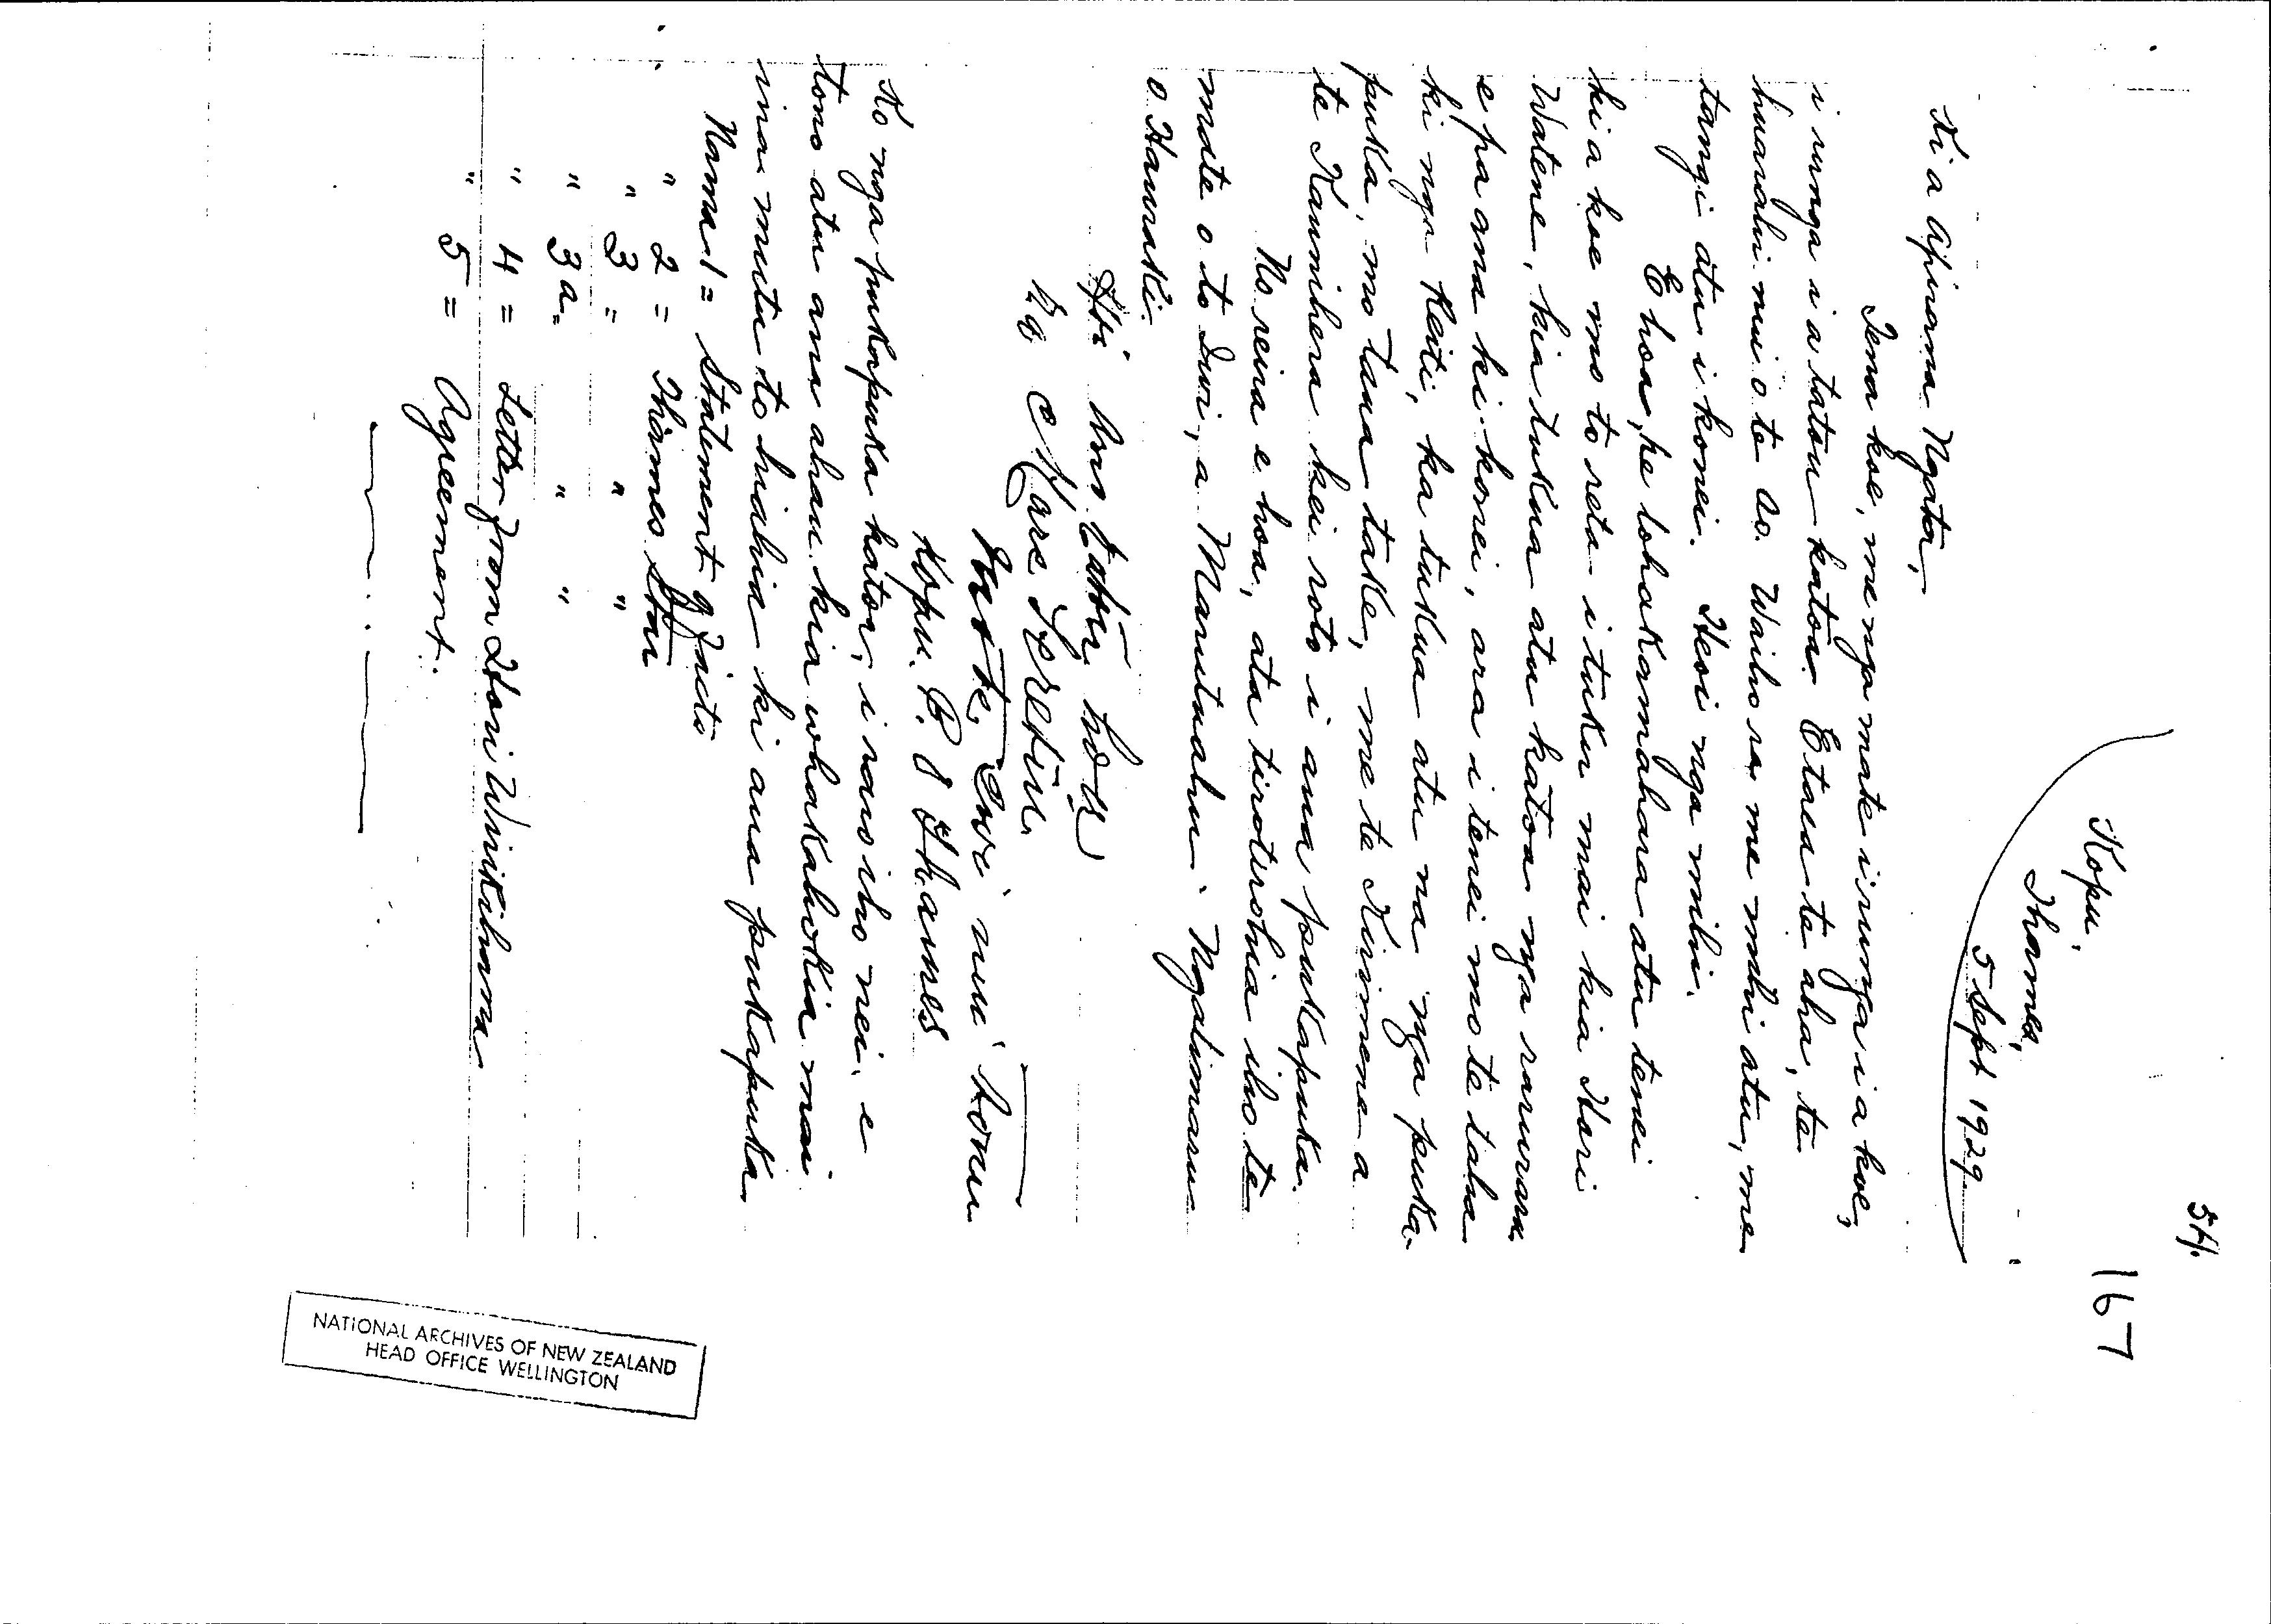 54.
167
Kopu.
Thames,
5 Sept 1929.
Ki a Apirana Ngata,
Tena koe, me nga mate i runga i a koe,
i runga i a tatou katoa. E taea te aha, te
huarahi nui o te Ao. Waiho ra me mihi atu, me
tangi atu i konei. Heoi nga mihi.
E hoa, he whakamahara atu tenei
ki a koe mo to reta i tuku mai kia Hori
Watene, kia tukua atu katoa nga raruraru
e pa ana ki konei, ara i tenei mo te taha
ki nga Reiti, ka tukua atu na nga puka-
puka, mo taua take, me te Kirimena a
te Kaunihera kei roto i aua pukapuka.
No reira e hoa, ata tirotirohia iho te
mate o to Iwi, a Marutuahu, Ngatimaru
o Hauraki.
Na Hare
Kopu. P. O Thames
Ko nga pukapuka katoa, i raro iho nei, e
tono atu ana ahau kia whakahokia mai
ina mutu to hiahia ki aua pukapuka.
Nama 1 = Statement of Facts
" 2 = Thames Star
" 3 = " "
" 3a = " "
" 4 = Letter from Hori Wirikihana
" 5 = Agreement.
NATIONAL ARCHIVES OF NEW ZEALAND
HEAD OFFICE WELLINGTON